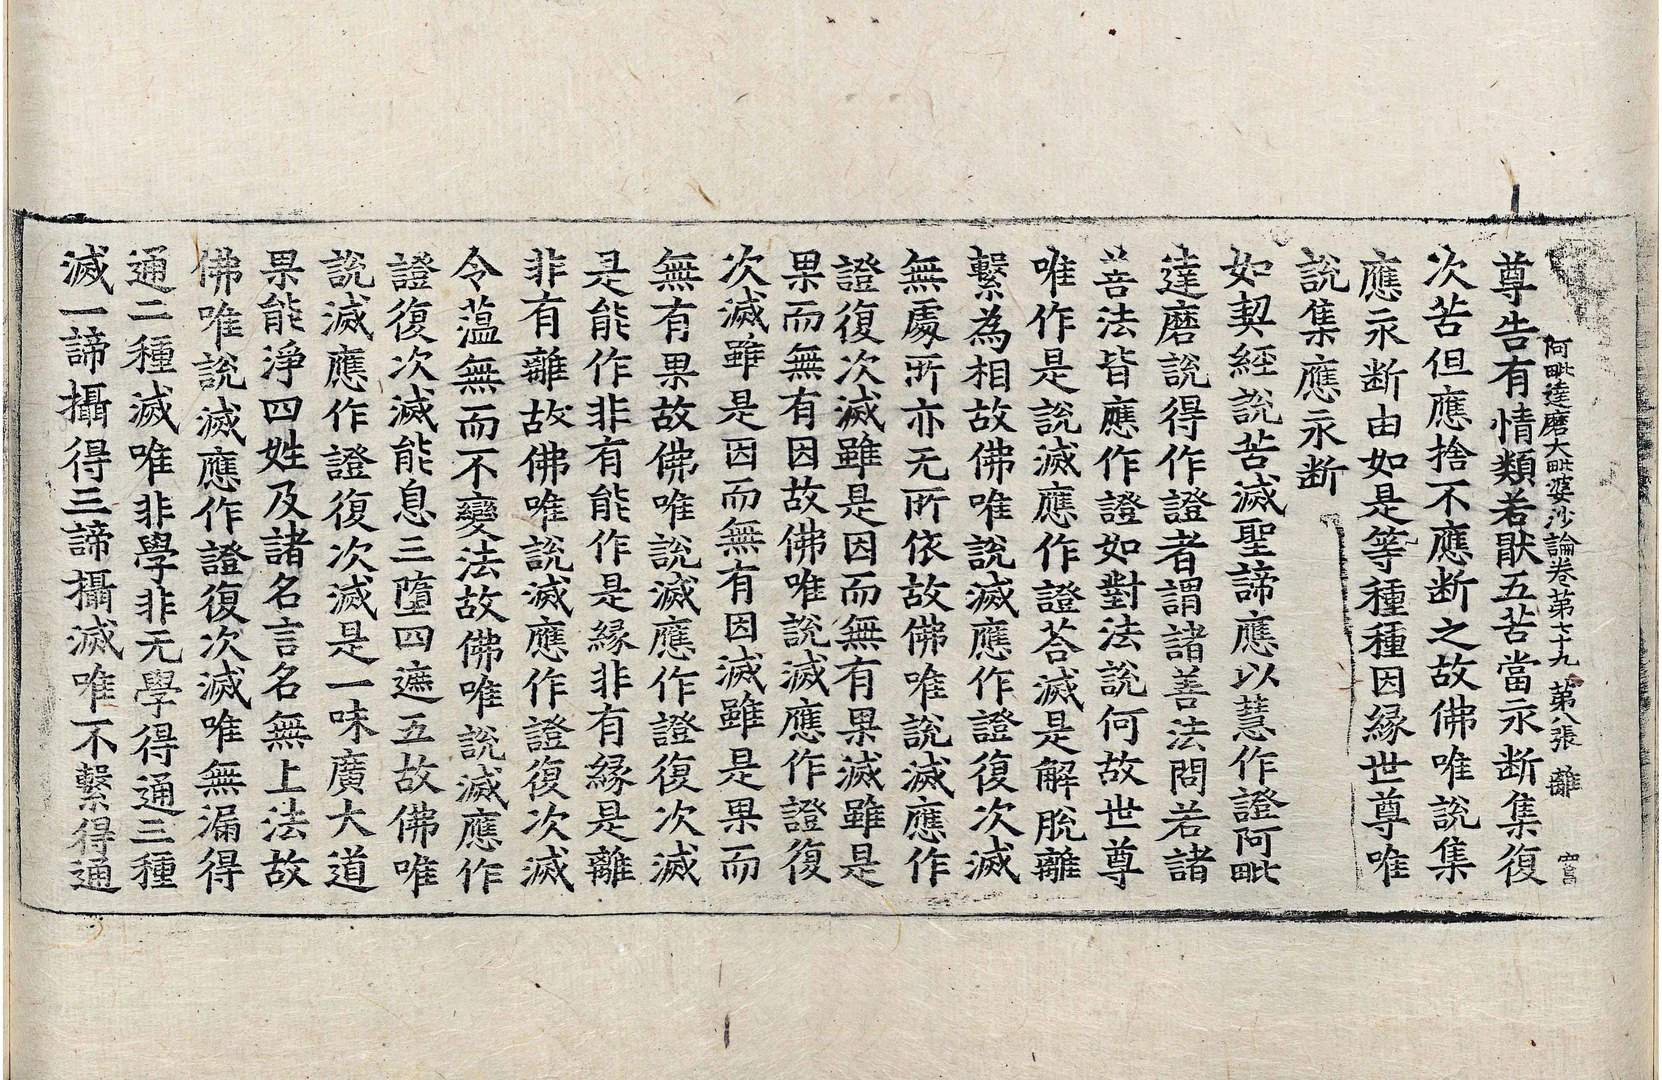 阿毗達磨大毗婆沙論卷第七十九 第八張 離
尊告有情類若猒五苦當永断集復
次苦但應捨不應断之故佛唯說集
應永断由如是等種種因緣世尊唯
說集應永断
如契經說苦滅聖諦應以慧作證阿毗
達磨說得作證者謂諸善法問若諸
善法皆應作證如對法說何故世尊
唯作是說滅應作證荅滅是解脫離
繫為相故佛唯說滅應作證復次滅
無處所亦无所依故佛唯說滅應作
證復次滅雖是因而無有果滅雖是
果而無有因故佛唯說滅應作證復
次滅雖是因而無有因滅雖是果而
無有果故佛唯說滅應作證復次滅
是能作非有能作是緣非有緣是離
非有離故佛唯說滅應作證復次滅
令薀無而不變法故佛唯說滅應作
證復次滅能息三墮四遮五故佛唯
說滅應作證復次滅是一味廣大道
果能淨四姓及諸名言名無上法故
佛唯說滅應作證復次滅唯無漏得
通二種滅唯非學非无學得通三種
滅一諦攝得三諦攝滅唯不繫得通